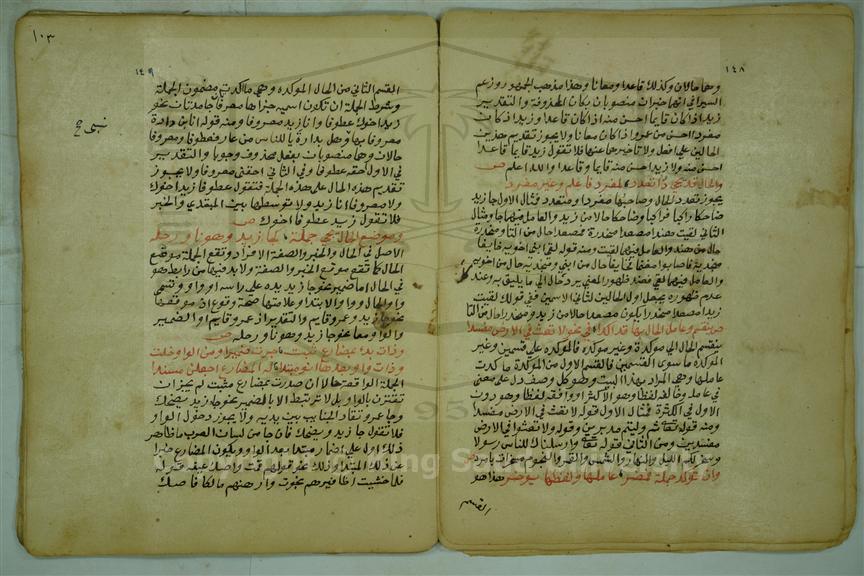 ١٤٨
وهما حالان وكذلك قاعدا ومعانا وهذا مذهب الجمهور وزعم
السيرافي انهما خبران منصوبان بكان المحذوفة والتقدير
زيد اذا كان قايما احسن منه اذا كان قاعدا وزيد اذا كان
مفردا احسن من عمرو اذا كان معانا ولا يجوز تقديم هذين
الحالين على افعل ولا تاخيرهما عنها فلا تقول زيد قايما قاعدا
احسن منه ولا زيد احسن منه قايما وقاعدا والله اعلم ص
والحال قد يجي ذا تعدد لمفرد فاعلم وغير مفرد
يجوز تعدد الحال وصاحبها مفردا ومتعدد فمثال الاول جا زيد
ضاحكا راكبا فراكبا وضاحكا حالا من زيد والعامل فيهما جا ومثال
الثاني لقيت هندا مصعدا منحدرة فمصعدا حال من التا ومنحدرة
حال من هند والعامل فيهما لقيت ومنه قوله لقى ابني اخويه خايفا
منجديه فاصابوا مغنما فخايفا حال من ابني ومنجديه حال من اخويه
والعامل فيهما لقى فعند ظهور المعنى يرد كل حال الى ما يليق به وعند
عدم ظهوره يجعل اول الحالين لثاني الاسمين ففي قولك لقيت
زيدا مصعدا منحدرا يكون مصعدا حالا من زيد ومنحدرا حال من التا
وعامل الحال بها قد اكدا في نحو لا تعث في الارض مفسدا
ينقسم الحال الى موكدة وغير موكدة فالموكدة على قسمين وغير
الموكدة ما سوى القسمين فالقسم الاول من الموكدة ما كدت
عاملها وهي المراد بهذا البيت وهو كل وصف دل على معنى
في عامله وخالفه لفظا وهو الاكثر او وافقه لفظا وهو دون
الاول في الكثرة فمثال الاول قوله لا تعث في الارض مفسدا
ومنه قوله تعالى ثم وليتم مدبرين وقوله ولا تعثوا في الارض
مفسدين ومن الثاني قوله تعالى وارسلناك للناس رسولا
وسخر لكم الليل والنهار والشمس والقمر والنجوم مسخرات بامره ص
وان توكد جملة فمضمر عاملها ولفظها يوخر هذا هو
القسم
١٠٣
١٤٩
القسم الثاني من الحال الموكده وهي ما اكدت مضمون الجملة
وشرط الجملة ان تكون اسمية جزاها معرفتان جامدتان نحو
زيد اخوك عطوفا وانا زيد معروفا ومنه قوله انا ابن دارة
معروفا بها نسبي وهل بدارة يا للناس من عار فعطوفا ومعروفا
حالان وهما منصوبان بفعل محذوف وجوبا والتقدير
في الاول احقه عطوفا وفي الثاني احق معروفا ولا يجوز
تقديم هذه الحال على هذه الجملة فتقول عطوفا زيد اخوك
ولا معروفا انا زيد ولا توسطها بين المبتدي والخبر
فلا تقول زيد عطوفا اخوك ص
وموضع الحال تجي جملة كجا زيد وهو ناو رحله
الاصل في الحال والخبر والصفة الافراد وتقع الجملة موقع
الحال كما تقع موقع الخبر والصفة ولا بد فيها من رابط وهو
في الحال اما ضمير نحو جا زيد يده على راسه او واو وتسمى
واو الحال وواو الابتدا وعلامتها صحة وقوع اذ موقعها
نحو جا زيد وعمرو قايم والتقدير اذ عمرو قايم او الضمير
والواو معا نحو جا زيد وهو ناو رحله ص
وذات بدء بمضارع ثبت حوت ضميرا ومن الواو خلت
وذات واو بعدها انو مبتدا له المضارع اجعلن مسندا
الجملة الواقعة حالا ان صدرت بمضارع مثبت لم يجز ان
تقترن بالواو بل لا ترتبط الا بالضمير نحو جا زيد يضحك
وجا عمرو تقاد الجنايب بين يديه ولا يجوز دخول الواو
فلا تقول جا زيد ويضحك فان جا من لسان العرب ما ظاهر
ذلك اول على اضمار مبتدا بعد الواو ويكون المضارع خبرا
عن ذلك المبتدا وذلك نحو قولهم قمت واصك عينه وقوله
فلما خشيت اظافيرهم نجوت وارهنهم مالكا فاصك